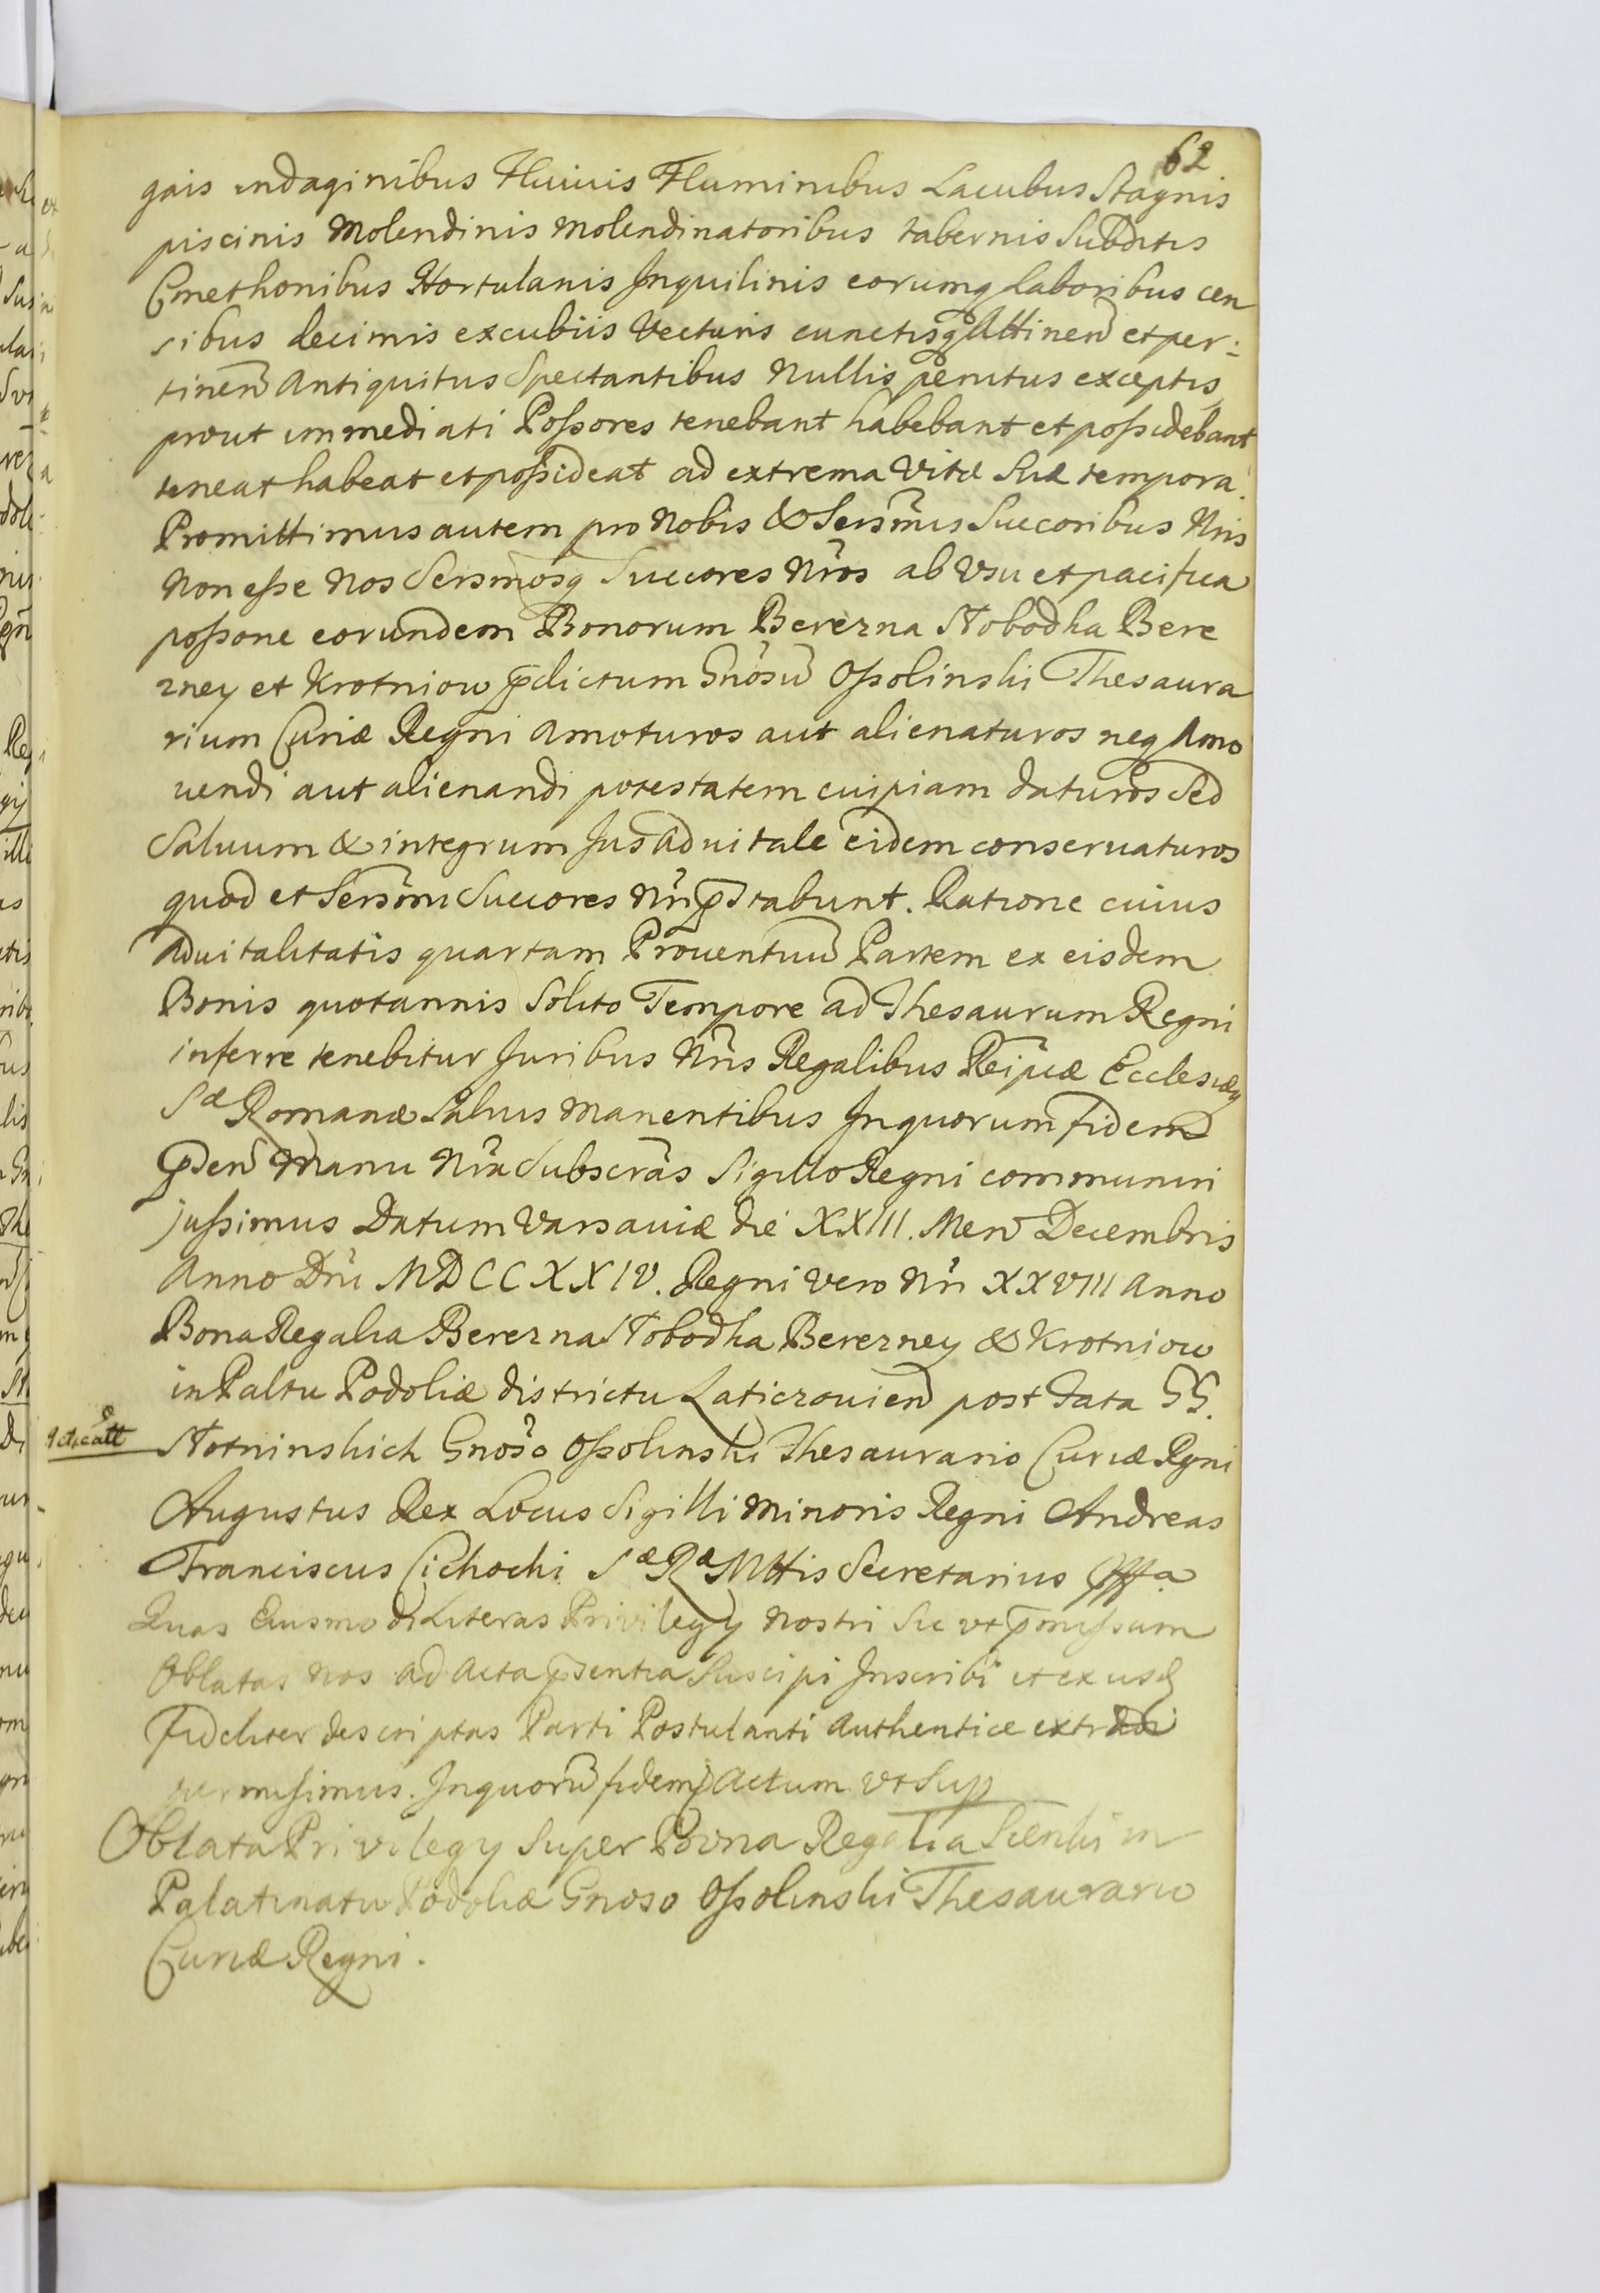 62
gais indaginibus Fluuiis Fluminibus Lacubus Stagnis
piscinis Molendinis Molendinatoribus tabernis Subditis
Cmethonibus Hortulanis Inquilinis eorumq laboribus cen
sibus decimis excubiis Vecturis cunctisq Attinen et per:
tinen Antiquitus Spectantibus Nullis penitus exceptis
prout immediati Possores tenebant habebant et possidebant
teneat habeat et possideat ad extrema Vitæ Suæ tempora.
Promittimus autem pro Nobis & Sersmis Succoribus Nris
Non esse Nos Sersmosq Succores Nros ab Vsu et pacifica
possone eorundem Bonorum Berezna Slobodka Bere
zney et Krotniow pdictum Gnosu Ossolinski Thesaura
rium Curiæ Regni Amoturos aut alienaturos neq Amo
uendi aut alienandi potestatem cuipiam daturos Sed
Saluum & integrum Jus Aduitale eidem conseruaturos
quod et Sersmi Succores Nri pstabunt. Ratione cuius
Aduitalitatis quartam Prouentuu Partem ex eisdem
Bonis quotannis Solito Tempore ad Thesaurum Regni
inferre tenebitur Juribus Nris Regalibus Reipuæ Ecclesiæq
Sæ Romanæ Saluis Manentibus In quorum fidem
Psen Manu Nra Subscras Sigillo Regni communiri
jussimus Datum Varsauiæ die XXIII. Men Decembris
Anno Dni MDCCXXIV. Regni Vero Nri XXVIII Anno
Bona Regalia Berezna Slobodka Berezney & Krotniow
in Paltu Podoliæ districtu Laticzouien post data GG.
Stotninskich Gnoso Ossolinski Thesaurario Curiæ Rgni
Augustus Rex Locus Sigilli Minoris Regni Andreas
Franciscus Cichocki Sæ Ræ Mttis Secretarius
Quas Eiusmodi Literas Privilegy Nostri Sic vt pmissum
Oblatas Nos ad Acta psentia Suscipi Inscribi et ex iisd
fideliter descriptas Parti Postulanti Authentice extradi
permisimus. In quoru fidem Actum vt Sup
Oblata Privilegy Super Bona Regalia in
Palatinatu Podoliæ Gnoso Ossolinski Thesaurario
Curiæ Regni.